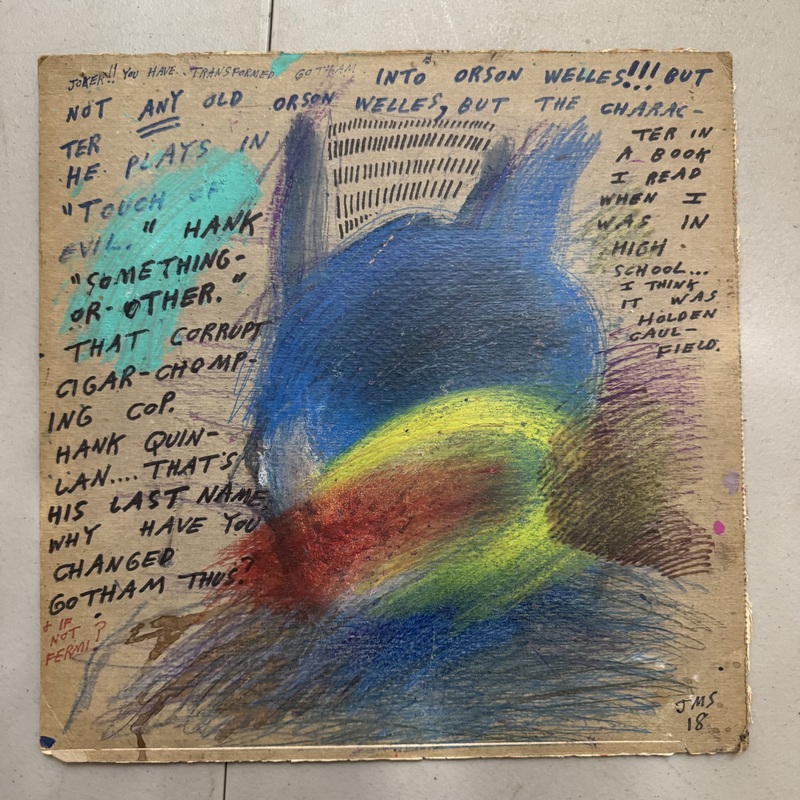 JOKER!! YOU HAVE TRANSFORMED GOTHAM INTO ORSON WELLES!!! BUT
NOT ANY OLD ORSON WELLES, BUT THE CHARAC-
TER
HE PLAYS IN
"TOUCH OF
EVIL." HANK
"SOMETHING-
OR-OTHER."
THAT CORRUPT
CIGAR-CHOMP-
ING COP.
HANK QUIN-
LAN.... THAT'S
HIS LAST NAME,
WHY HAVE YOU
CHANGED
GOTHAM THUS?
& IF
NOT
FERMI?
TER IN
A BOOK
I READ
WHEN I
WAS IN
HIGH
SCHOOL...
I THINK
IT WAS
HOLDEN
CAUL-
FIELD.
JMS
18